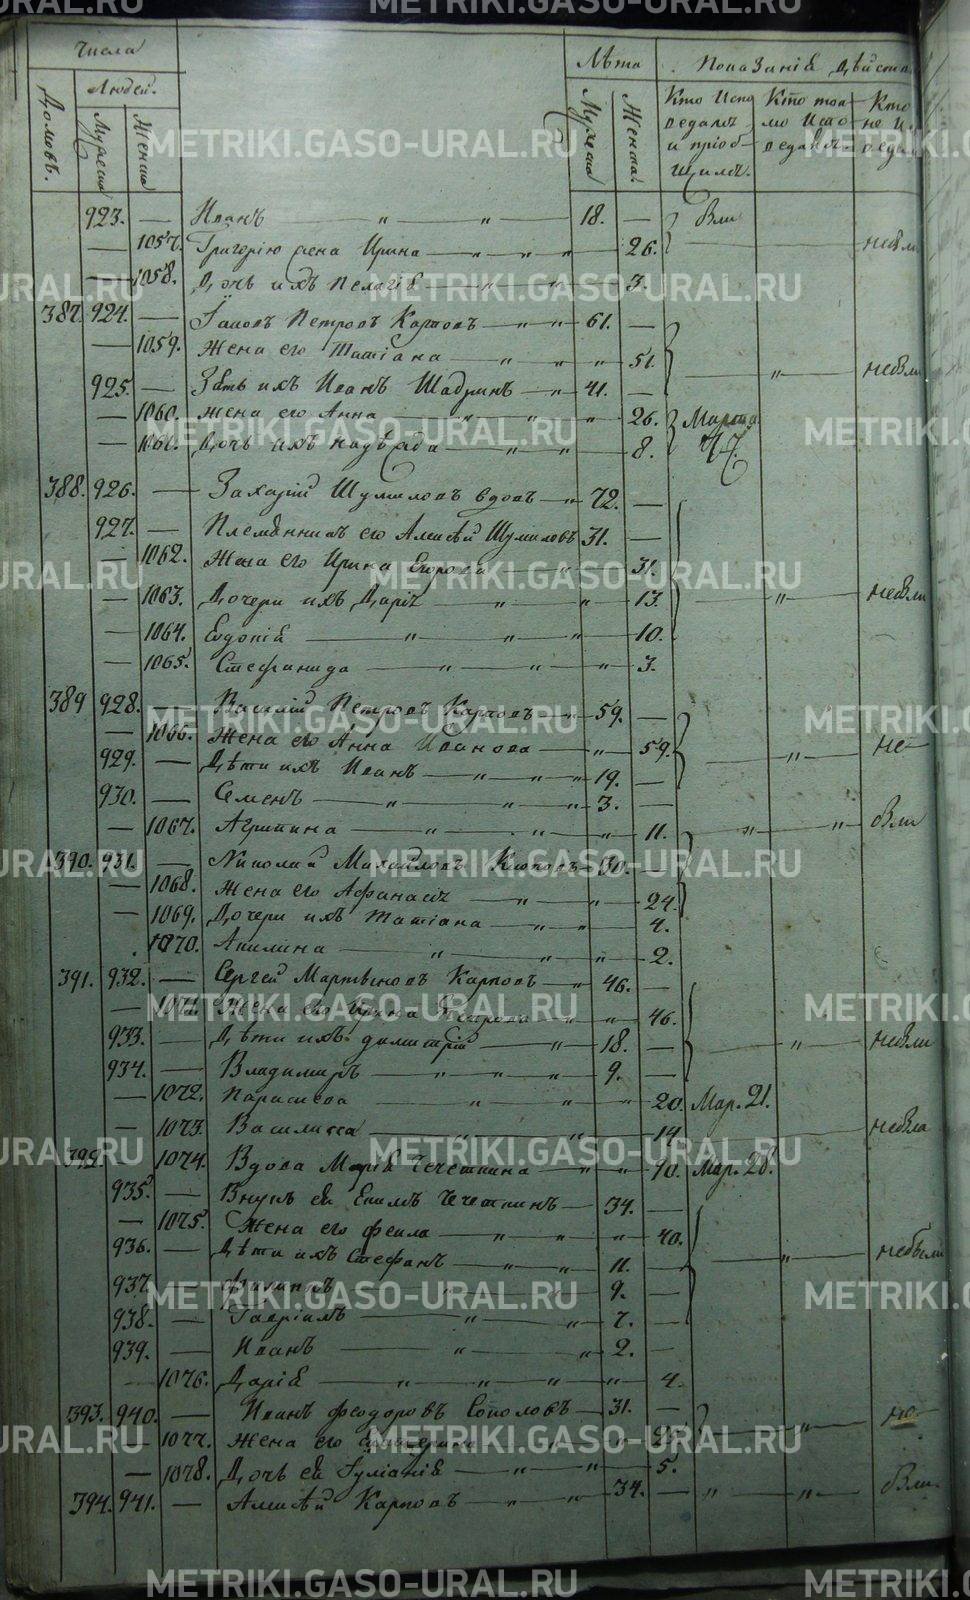 METRIKI.GASO-URAL.RU
Числа
Лѣта
Показанія дѣйств
Домовъ.
Людей.
Мужеска
Женска
Мужеска
Женска.
Кто Испо
ведалъ
и пріоб-
щилъ.
Кто ток
мо Испо
ведалъ.
Кто
не И
923. — Иванъ — „ — „ — 18. — Были
— 1057. Григорію жена Ирина — „ — „ — „ — 26. небыли
— 1058. Дочь ихъ Пелагіѣ — „ — „ — 3.
387. 924. — Петровъ Карповъ — „ — „ — 61. —
— 1059. Жена его Татіана — „ — „ — 51. — „ — небыли
925. — Зѣть ихъ Иванъ Шадринъ — „ — 41. —
— 1060. Жена его Анна — „ — „ — 26. Марта
— 1061. Дочь ихъ Надѣжда — „ — „ — 8.
388. 926. — Захарій Шумиловъ вдовъ — „ — 72. —
927. — Племѣнникъ его Алексѣй Шумиловъ 31. —
— 1062. Жена его Ирина Егорова — „ — 31.
— 1063. Дочери ихъ Даріѣ — „ — „ — 13. — „ — небыли
— 1064. Евдокіѣ — „ — „ — „ — 10.
— 1065. Стефанида — „ — „ — „ — 3.
389 928. — Василій Петровъ Карповъ — „ — 59. —
— 1066. Жена его Анна Иванова — „ — 59. — „ — не —
929. — Дѣти ихъ Иванъ — „ — „ — 19. —
930. — Семенъ — „ — „ — „ — 3. —
— 1067. Агрипина — „ — „ — „ — 11. — „ — „ — были
390. 931. — Николай Михайловъ — 30. —
— 1068. Жена его Афанасіѣ — „ — „ — 24.
— 1069. Дочери ихъ Татіана — „ — „ — 4.
1070. Акилина — „ — „ — 2.
391. 932. — Сергей Мартыновъ Карповъ — „ — 46. —
— 1071. Жена его Ирина Петрова — „ — „ — 46.
933. — Дѣти ихъ Димитрій — „ — 18. — „ — небыли
934. — Владимиръ — „ — „ — 9. —
— 1072. Параскева — „ — „ — „ — 20. Мар. 21.
— 1073. Василисса — „ — „ — 14. небыла
392. — 1074. Вдова Маріѣ Чечеткина — „ — „ — 70. Мар. 28.
935. — Внукъ ей Екимъ Чечеткинъ — 34. —
— 1075. Жена его Фекла — „ — „ — „ — 40. — „ — небыли
936. — Дѣти ихъ Стефанъ — „ — „ — 11. —
937. — Филипъ — „ — 9. —
938. — Гавріилъ — „ — „ — 7. —
939. — Иванъ — „ — „ — 2. —
— 1076. Даріѣ — „ — „ — „ — „ — 4.
393. 940. — Иванъ Феодоровъ Соколовъ — 31. — „ — не
— 1077. Жена его — „ — 25.
— 1078. Дочь ей Іуліаніѣ — „ — „ — 5.
394. 941. — Алексѣй Карповъ — „ — „ — 34. — „ — „ — были.